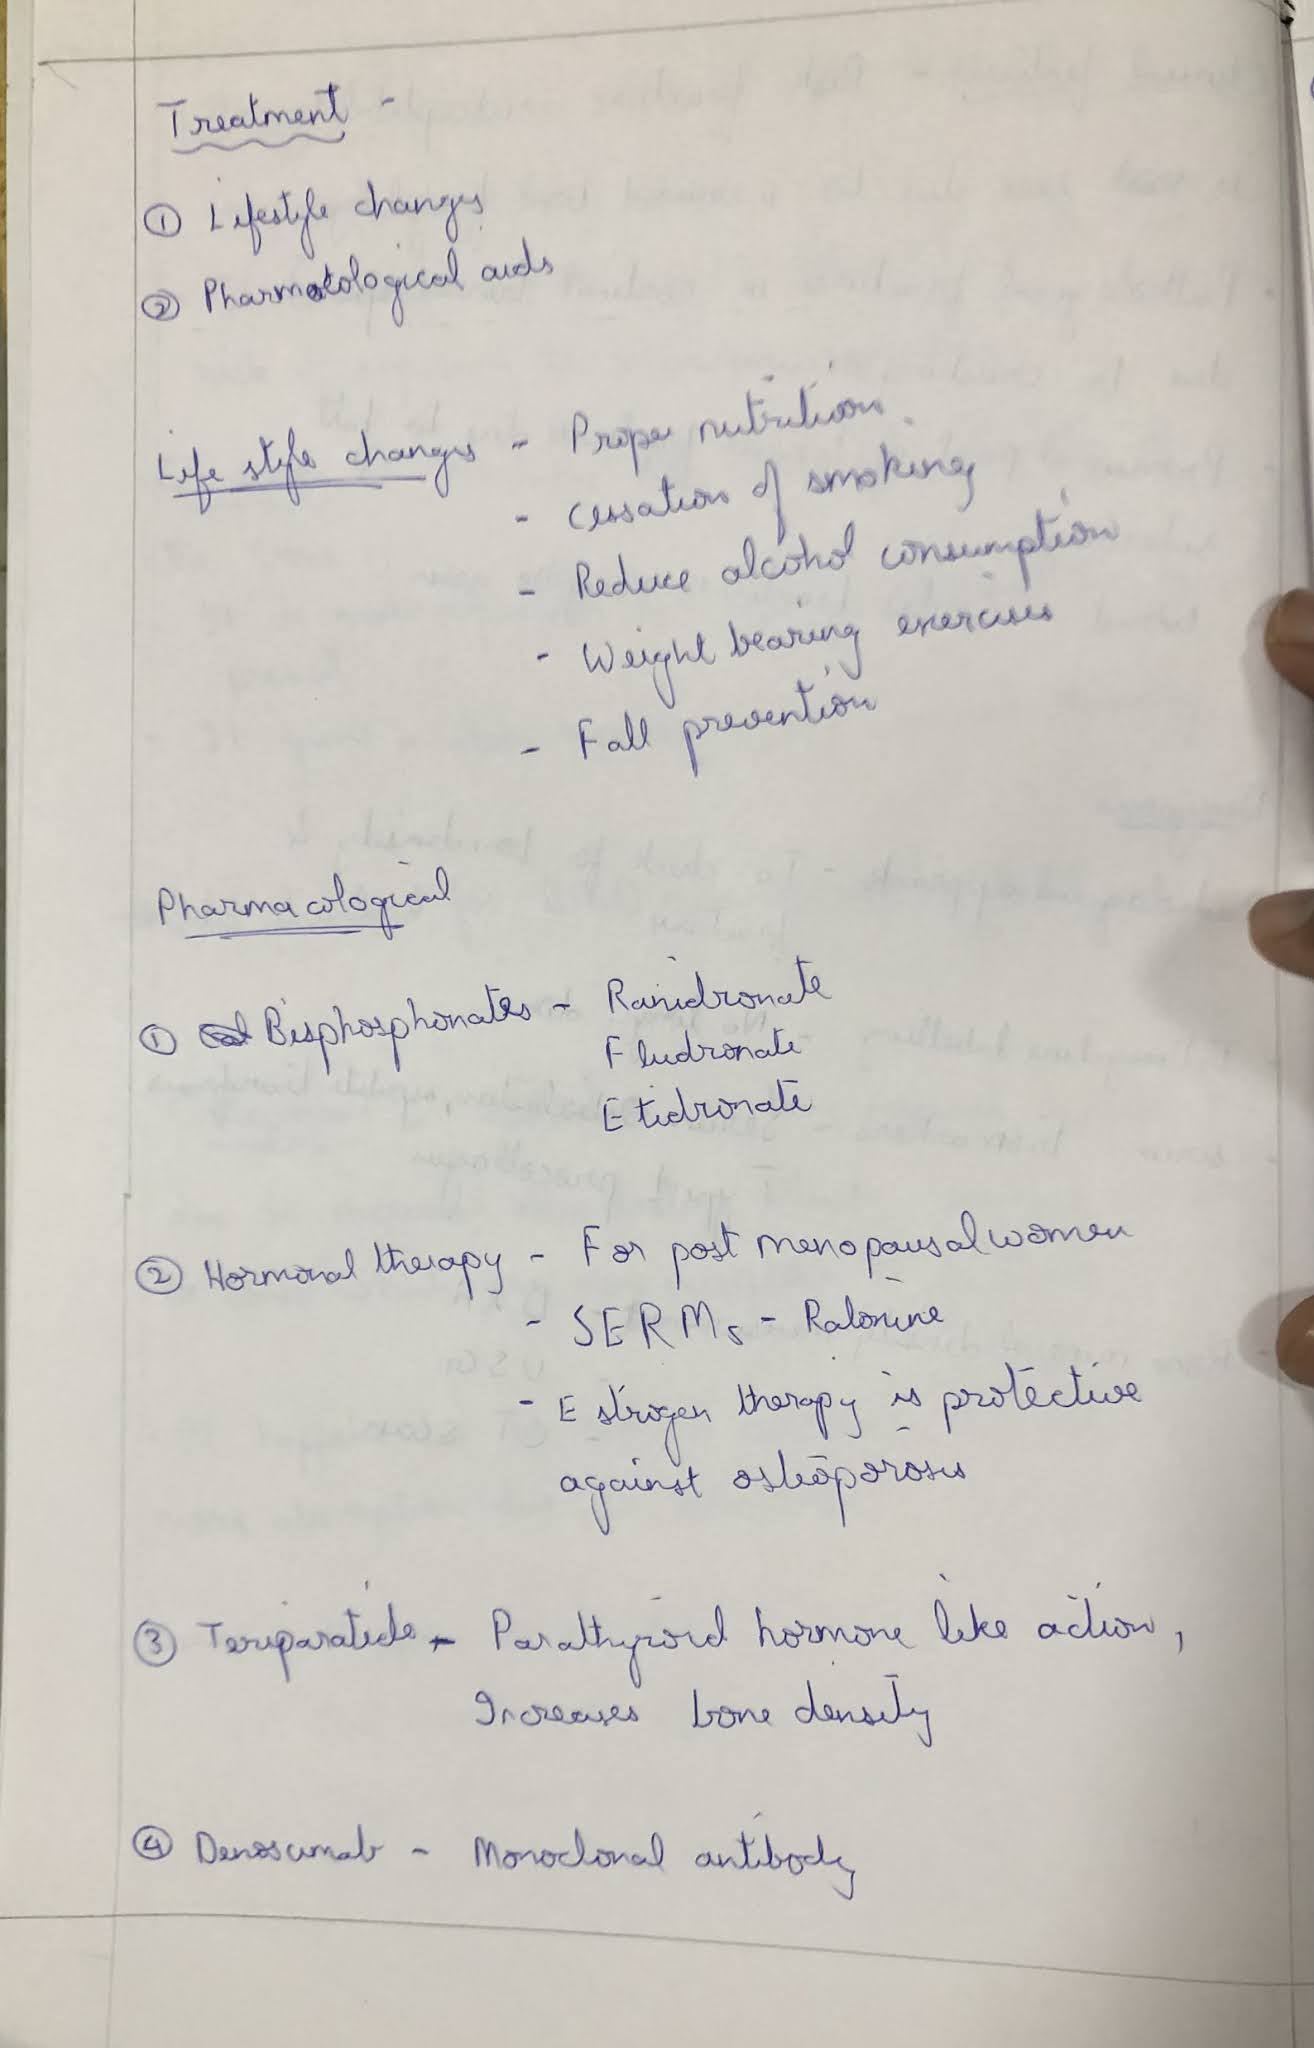 Treatment -
① Lifestyle changes
② Pharmacological aids
Life style changes - Proper nutrition
- cessation of smoking
- Reduce alcohol consumption
- Weight bearing exercises
- Fall prevention
Pharmacological
① Bisphosphonates - Ranidronate
Fludronate
Etidronate
② Hormonal therapy - For post menopausal women
- SERMs - Raloxine
- Estrogen therapy is protective
against osteoporosis
③ Teriparatide - Parathyroid hormone like action,
Increases bone density
④ Denosumab - Monoclonal antibody